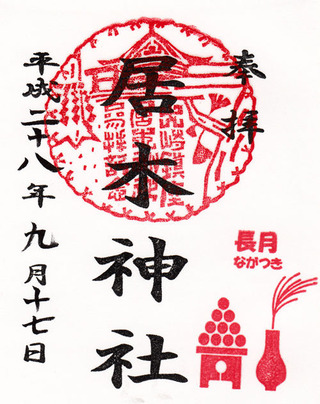 奉拝
居木神社
長月
ながつき
平成二十八年九月十七日